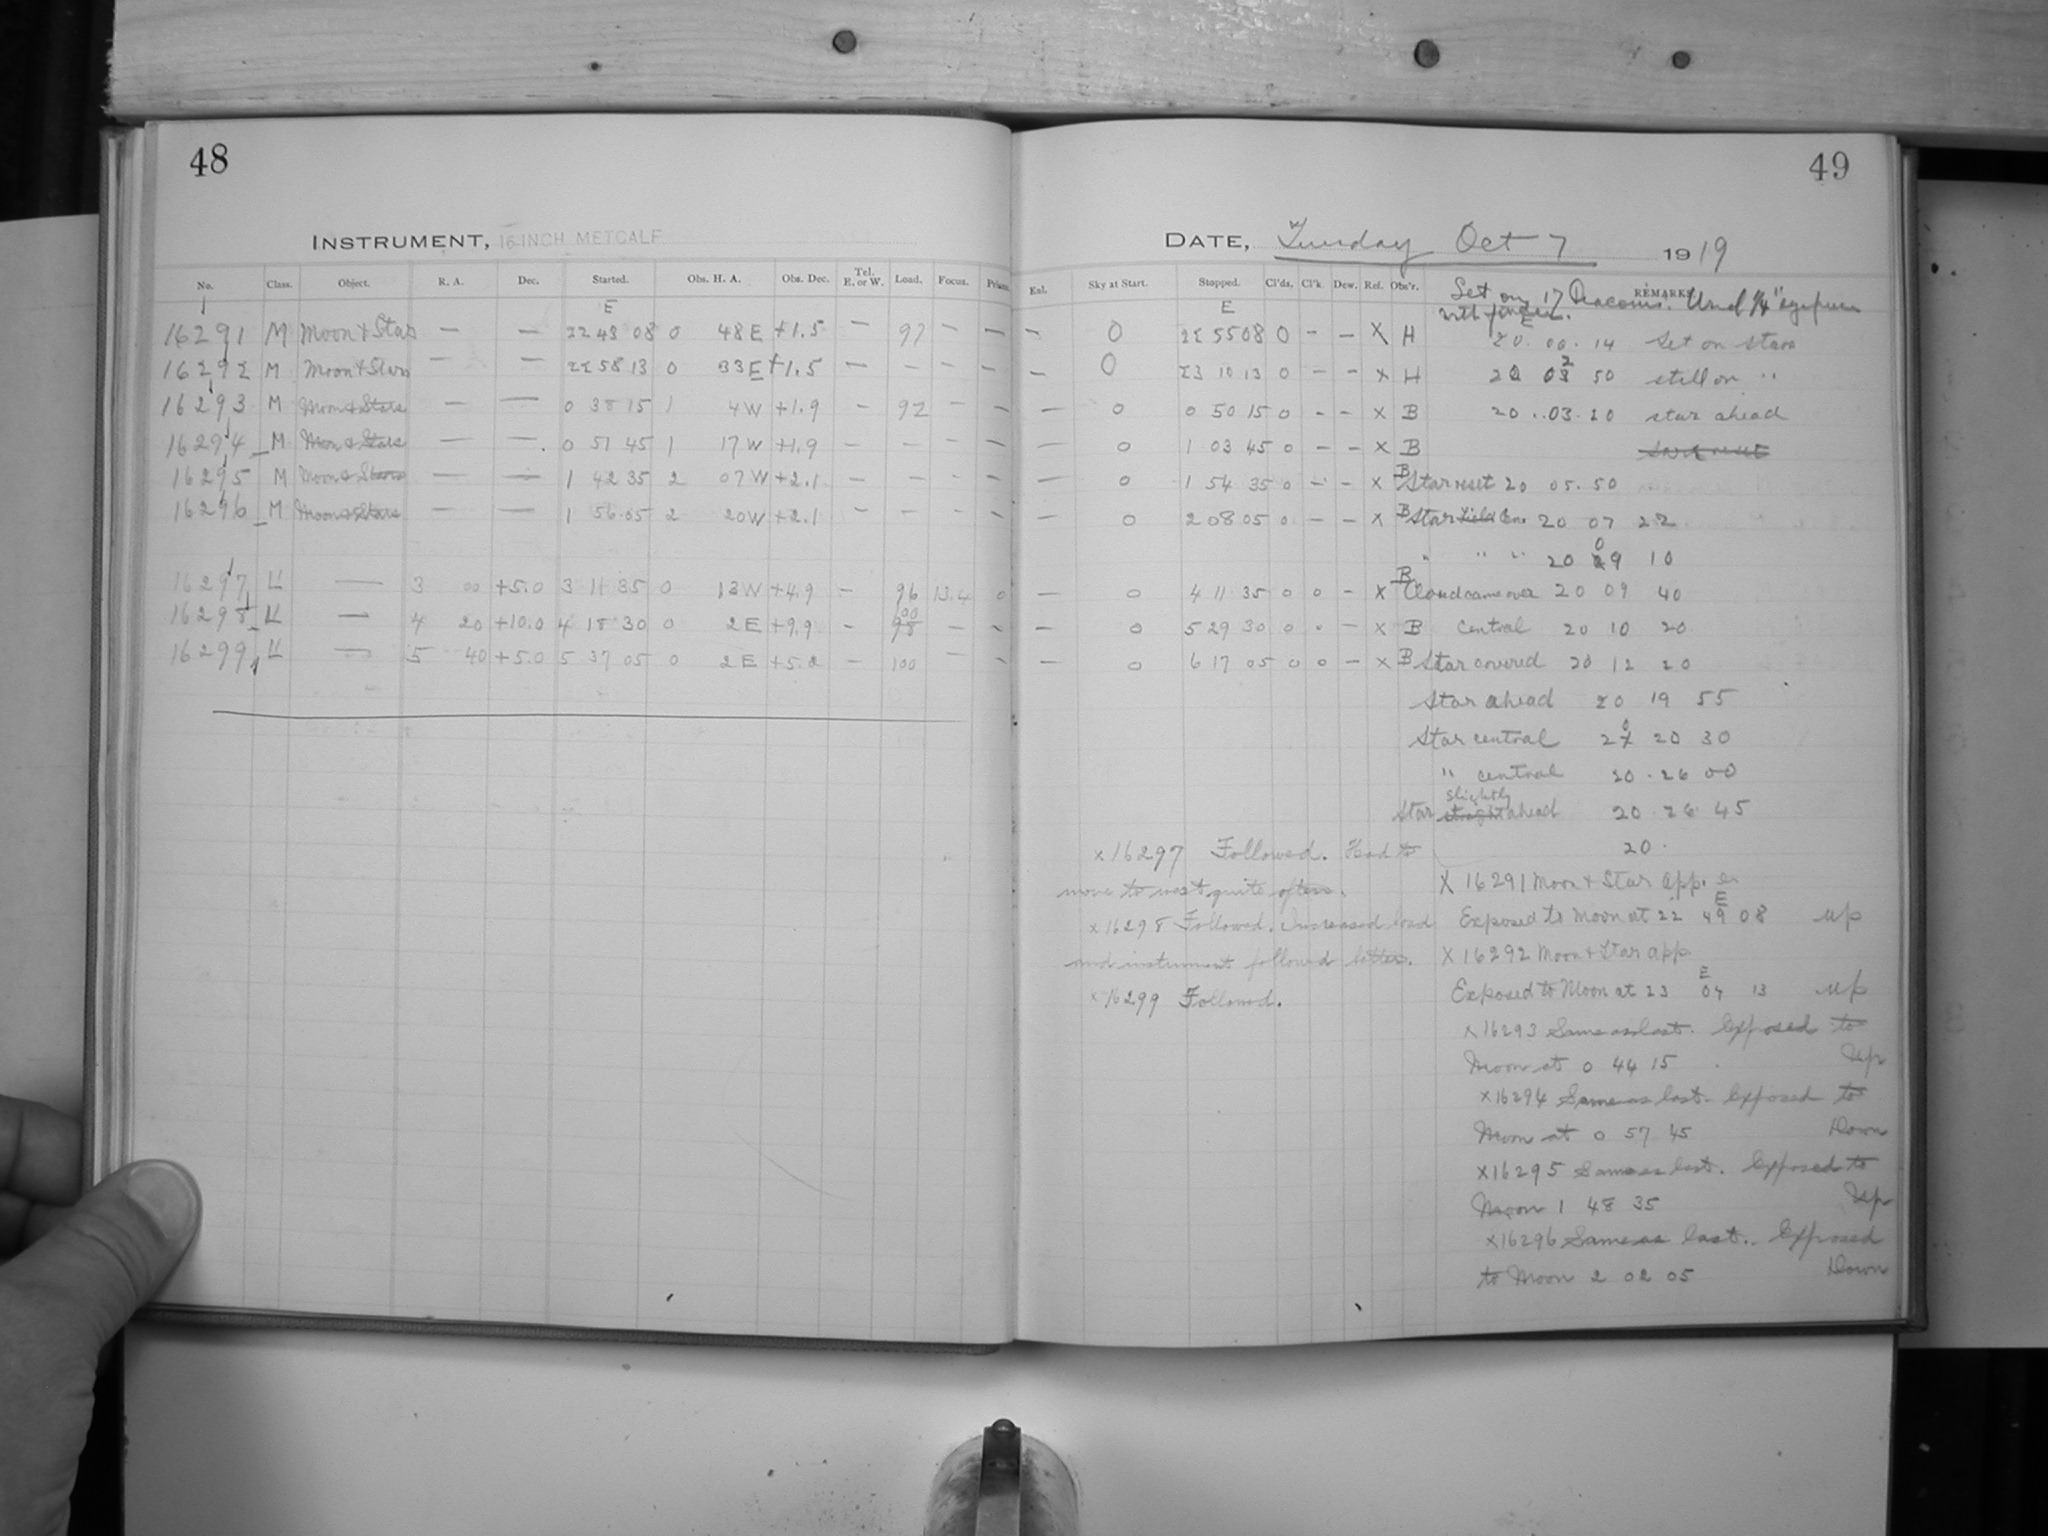 48
INSTRUMENT, 16-INCH METCALF
No. Class. Object. R. A. Dec. Started. Obs. H. A. Obs. Dec. Tel. E. or W. Load. Focus. Prism.
E
16291 M Moon & Star — — 22 43 08 0 48 E +1.5 — 97 — —
16292 M Moon & Stars — — 22 58 13 0 33 E +1.5 — — — —
16293 M Moon & Stars — — 0 38 15 1 4 W +1.9 — 92 — —
16294 M Moon & Stars — — 0 51 45 1 17 W +1.9 — — — —
16295 M Moon & Stars — — 1 42 35 2 07 W +2.1 — — — —
16296 M Moon & Stars — — 1 56 05 2 20 W +2.1 — — — —
16297 — 3 00 +5.0 3 11 35 0 13 W +4.9 — 96 13.4 0
16298 — 4 20 +10.0 4 18 30 0 2 E +9.9 — 98 100 — —
16299 — 5 40 +5.0 5 37 05 0 2 E — 100 — —
49
DATE, Tuesday Oct 7 1919
Exl. Sky at Start. Stopped. Cl'ds. Cl'k. Dew. Ref. Obs'r. REMARKS
Set on 17 Used 1/4" eyepiece
with finder.
E
— 0 22 55 08 0 — — X H 20 00 14 Set on stars
— 0 23 10 13 0 — — X H 20 02 50 still on "
— 0 0 50 15 0 — — X B 20 03 20 star ahead
— 0 1 03 45 0 — — X B
— 0 1 54 35 0 — — X B Star reset 20 05 50
— 0 2 08 05 0 — — X B Star 20 07 22
" " " 20 09 10
— 0 4 11 35 0 0 — X B Cloud came over 20 09 40
— 0 5 29 30 0 0 — X B central 20 10 20
— 0 6 17 05 0 0 — X B Star covered 20 12 20
Star ahead 20 19 55
Star central 20 20 30
" central 20 26 00
Star slightly ahead 20 26 45
20
x 16297 Followed. Had to
move to west quite often.
x 16298 Followed. Increased load
and instrument followed better.
x 16299 Followed.
X 16291 Moon & Star app.
Exposed to Moon at 22 49 08 up
E
X 16292 Moon & Star app
Exposed to Moon at 23 04 13 up
E
x 16293 Same as last. Exposed to
Moon at 0 44 15 Up
x 16294 Same as last. Exposed to
Moon at 0 57 45 Down
x 16295 Same as last. Exposed to
Moon 1 48 35 Up
x 16296 Same as last. Exposed
to Moon 2 02 05 Down